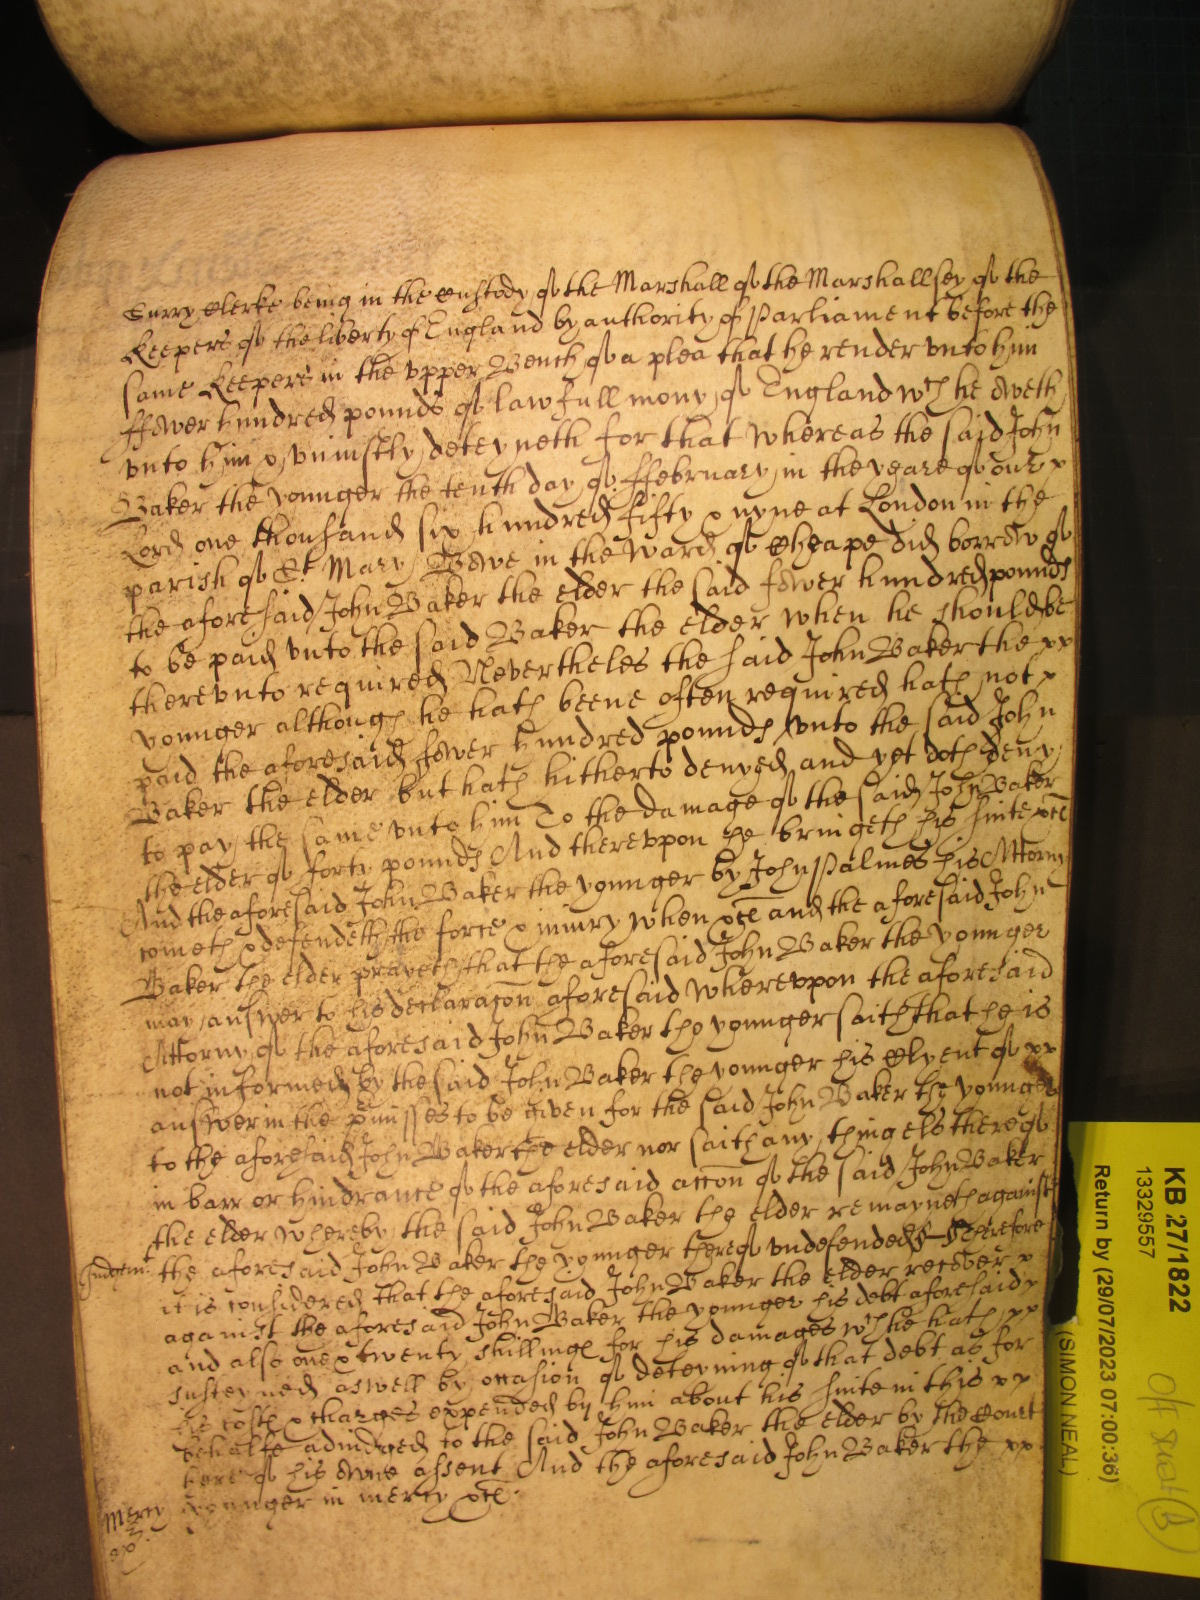 Curry Clerke being in the Custody of the Marshall of the Marshallsey of the
Keepers of the liberty of England by authority of Parliament before the
same Keepers in the vpper Bench of a plea that he render vnto him
ffower hundred pounds of lawfull mony of England wch he oweth
vnto him & vniustly deteyneth for that whereas the said John
Baker the younger the tenth day of ffebruary in the yeare of our x
Lord one thousand six hundred fifty & nyne at London in the
parish of St Mary Bowe in the Ward of Cheape did borrow of
the aforesaid John Baker the elder the said fower hundred pounds
to be paid vnto the said Baker the elder when he should be
therevnto required Nevertheles the said John Baker the xx
younger although he hath beene often required hath not x
paid the aforesaid fower hundred pounds vnto the said John
Baker the elder but hath hitherto denyed and yet doth deny
to pay the same vnto him To the damage of the said John Baker
the elder of forty pounds And therevpon he bringeth his suite &c
And the aforesaid John Baker the younger by John Palmes his Attorny
cometh & defendeth the force & iniury when &c and the aforesaid John
Baker the elder prayeth that the aforesaid John Baker the younger
may answer to his declaracon aforesaid wherevpon the aforesaid
Attorny of the aforesaid John Baker the younger saith that he is
not informed by the said John Baker the younger his Clyent of xx
answer in the pmisses to be given for the said John Baker the younger
to the aforesaid John Baker the elder nor saith any thing els thereof
in barr or hindrance of the aforesaid accon of the said John Baker
the elder whereby the said John Baker the elder remayneth against
Judgemt the aforesaid John Baker the younger thereof vndefended Therefore
it is considered that the aforesaid John Baker the elder recover x
against the aforesaid John Baker the younger his debt aforesaid x
and also one & twenty shillings for his damages wch he hath xx
susteyned aswell by occasion of deteyning of that debt as for
his costs & charges expended by him about his suite in this xx
behalfe adiudged to the said John Baker the elder by the Court
here of his owne assent And the aforesaid John Baker the xx
Mercy younger in mercy &c.
KB 27/1822
13329557
Return by (29/07/2023 07:00:36)
(SIMON NEAL)